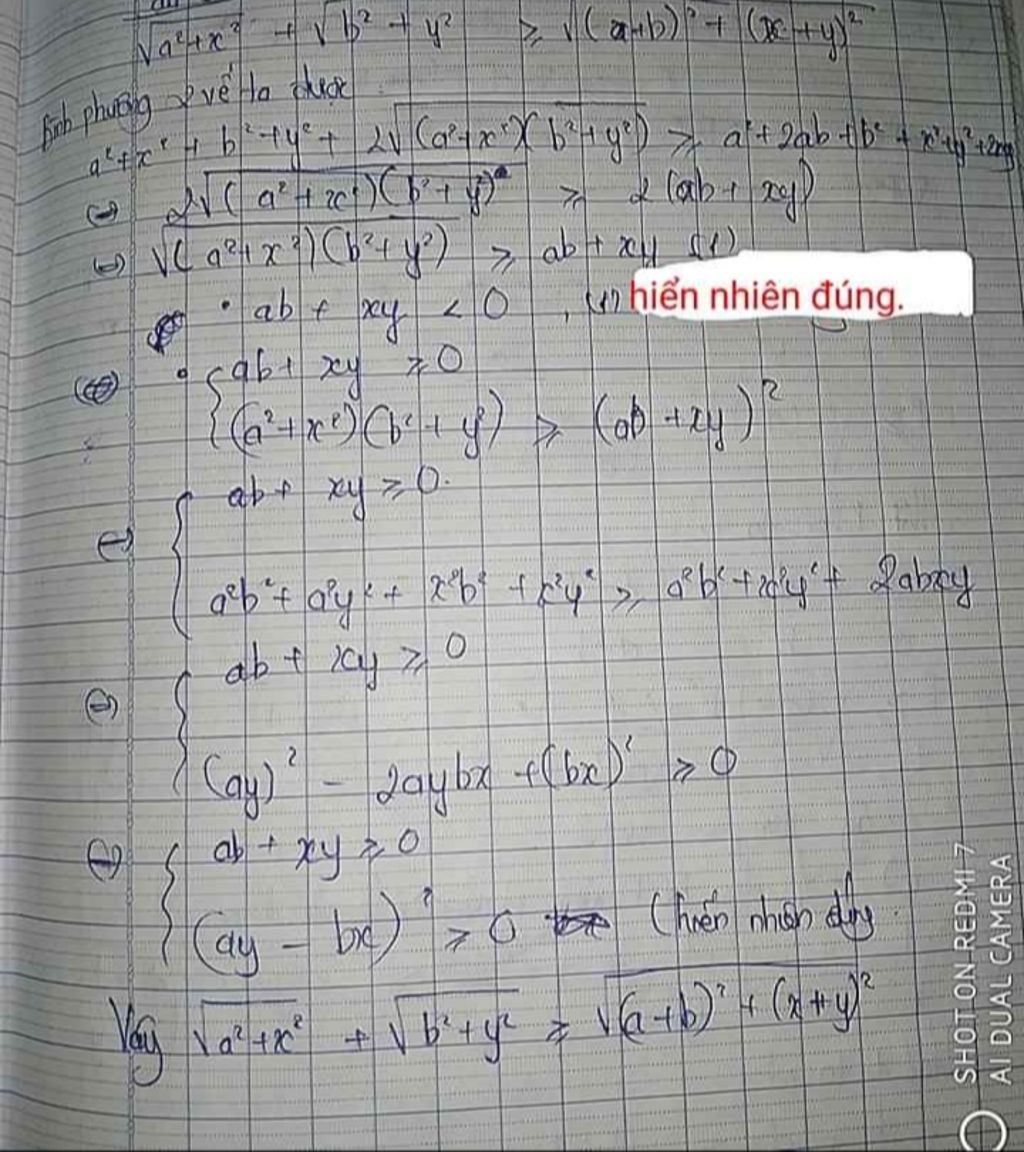 √a²+x² + √b²+y² ≥ √(a+b)² + (x+y)²
Bình phương 2 vế ta được
a²+x² + b²+y² + 2√(a²+x²)(b²+y²) ≥ a²+2ab+b² + x²+y²+2xy
⇔ 2√(a²+x²)(b²+y²) ≥ 2(ab+xy)
⇔ √(a²+x²)(b²+y²) ≥ ab+xy (1)
• ab + xy < 0 , (1) hiển nhiên đúng.
• { ab + xy ≥ 0
(a²+x²)(b²+y²) ≥ (ab+xy)²
⇔ { ab + xy ≥ 0.
a²b² + a²y² + x²b² + x²y² ≥ a²b² + x²y² + 2abxy
⇔ { ab + xy ≥ 0
(ay)² - 2aybx + (bx)² ≥ 0
⇔ { ab + xy ≥ 0
(ay - bx)² ≥ 0 (hiển nhiên đúng
Vậy √a²+x² + √b²+y² ≥ √(a+b)² + (x+y)²
SHOT ON REDMI 7
AI DUAL CAMERA